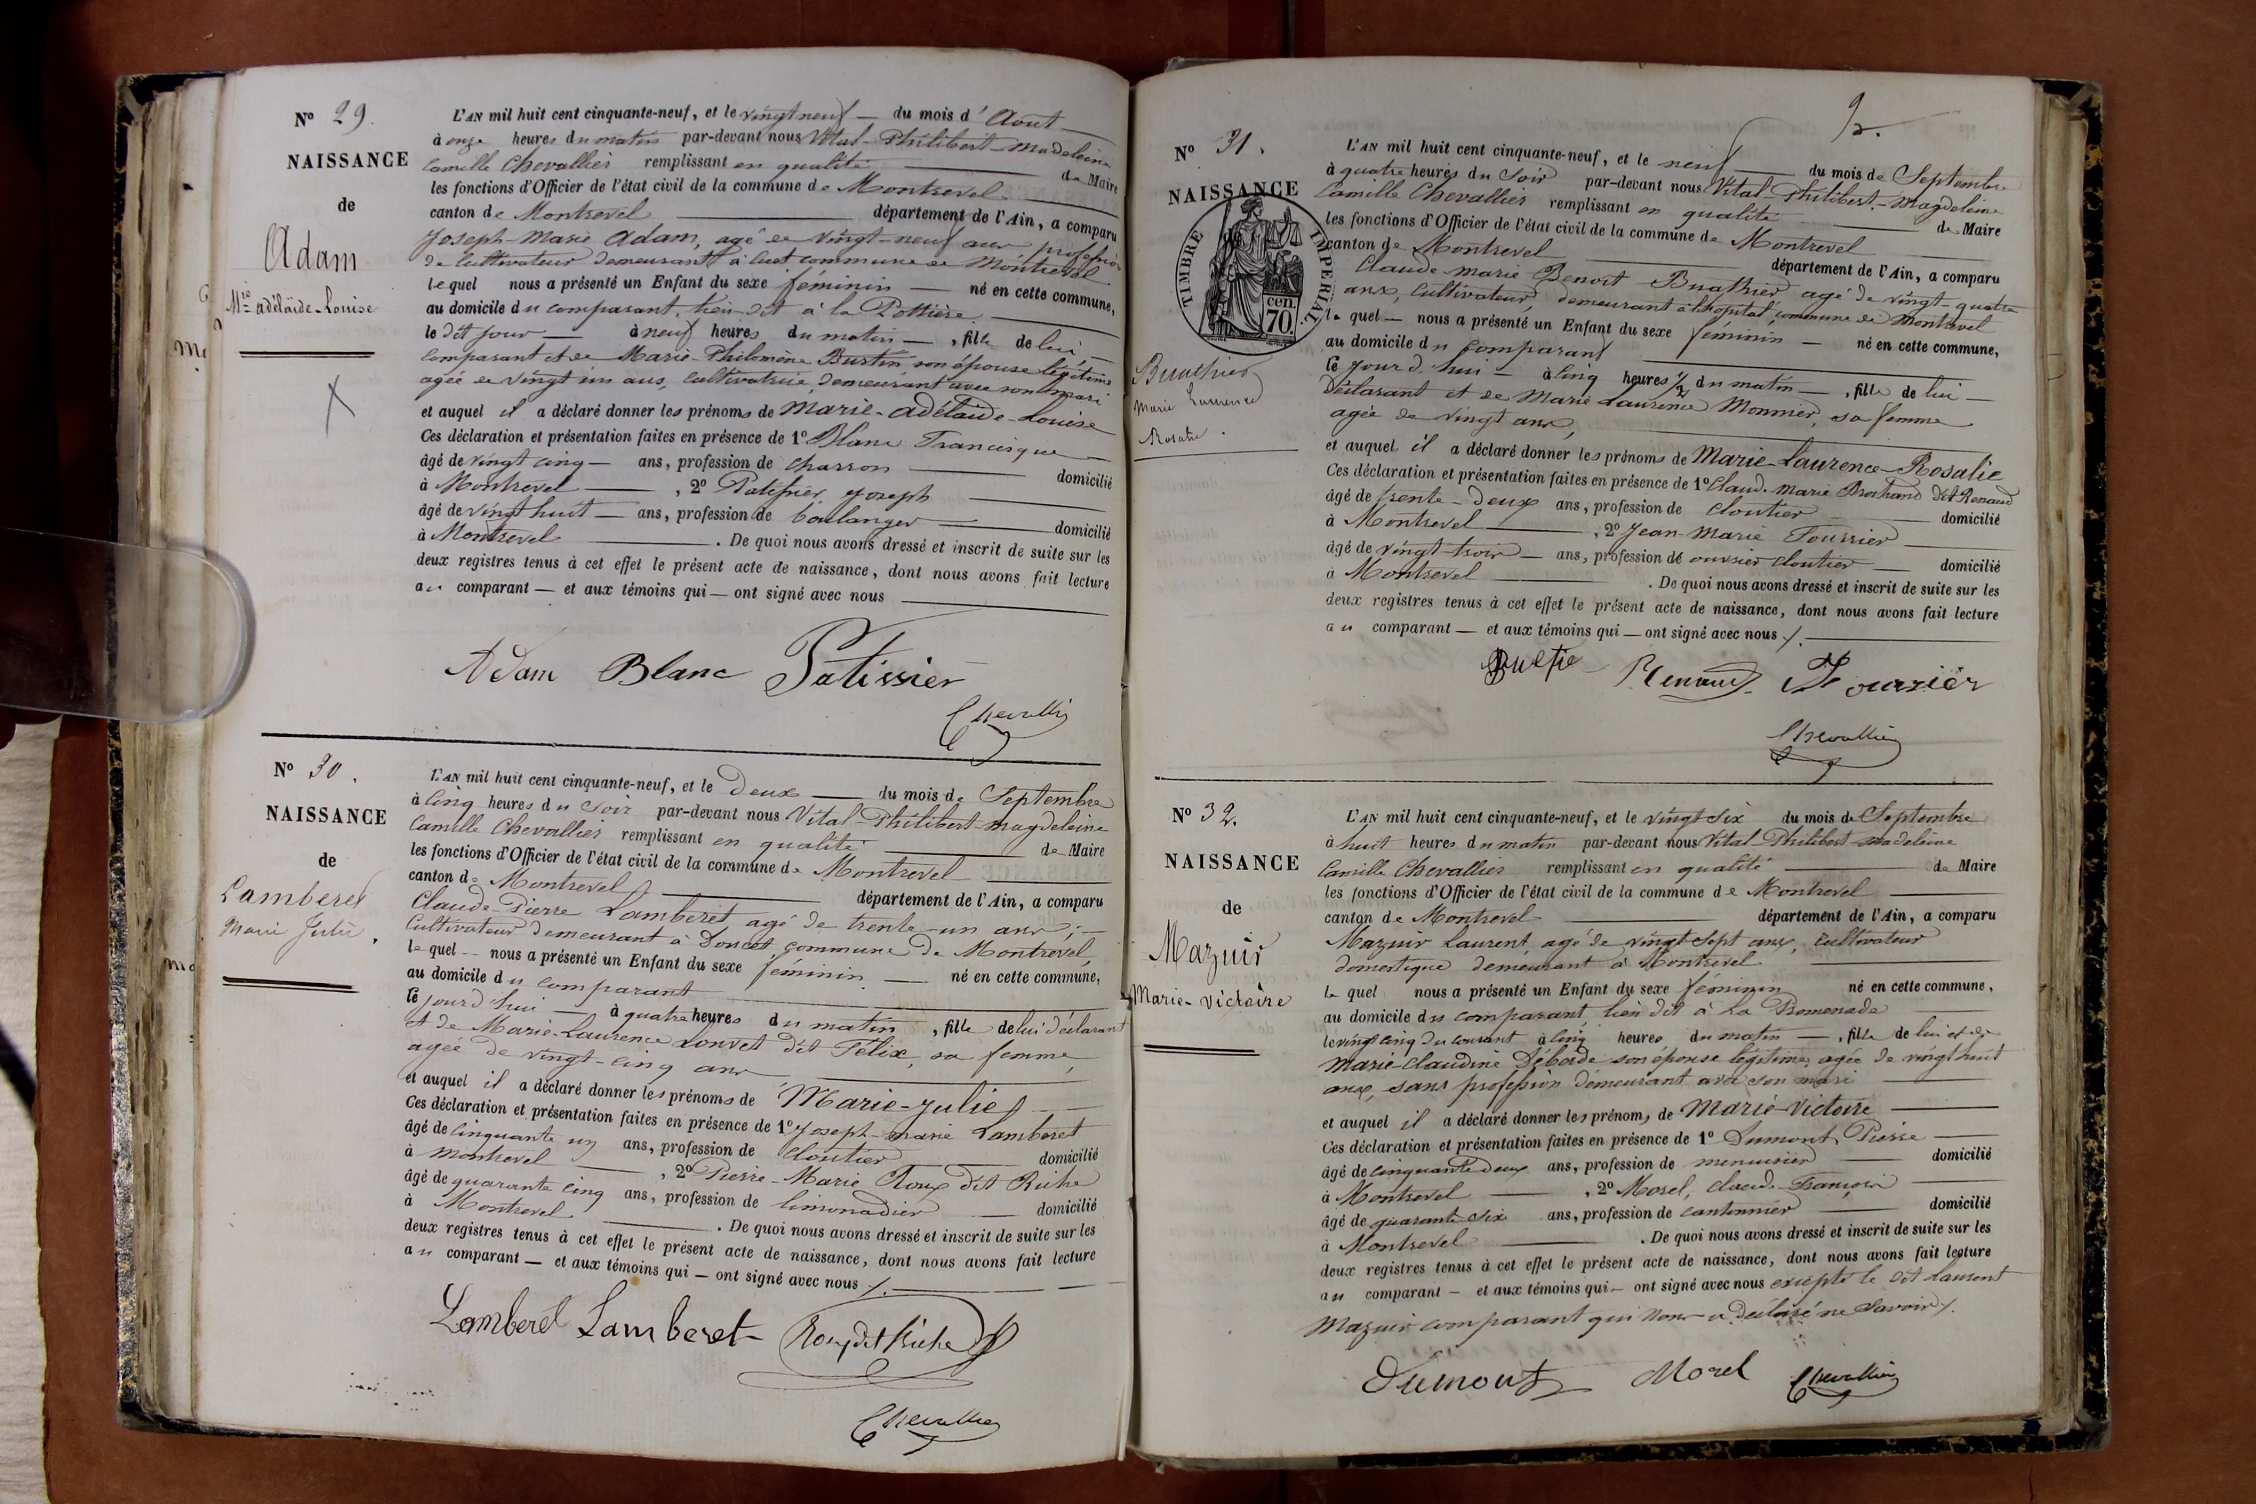 Nº 29.
NAISSANCE
de
Adam
Mie adélaïde-Louise
L'AN mil huit cent cinquante-neuf, et le vingt neuf — du mois d'Aout
à onze heures du matin par-devant nous Vital-Philibert-Madeleine
Camille Chevallier remplissant en qualité de Maire
les fonctions d'Officier de l'état civil de la commune de Montrevel
canton de Montrevel département de l'Ain, a comparu
Joseph-Marie Adam, agé de vingt-neuf ans profession
de Cultivateur demeurant à Cuet commune de Montrevel
lequel nous a présenté un Enfant du sexe féminin — né en cette commune,
au domicile du comparant, lieu dit à la Pottière
le dit jour — à neuf heures du matin — , fille de lui,
comparant et de Marie-Philomène Burtin, son épouse légitime
agée de vingt un ans, cultivatrice demeurant avec son mari
et auquel il a déclaré donner les prénoms de Marie-adélaïde-Louise
Ces déclaration et présentation faites en présence de 1º Blanc Francisque
âgé de vingt cinq — ans, profession de charron domicilié
à Montrevel , 2º Patissier Joseph
âgé de vingt huit — ans, profession de boulanger domicilié
à Montrevel . De quoi nous avons dressé et inscrit de suite sur les
deux registres tenus à cet effet le présent acte de naissance, dont nous avons fait lecture
au comparant — et aux témoins qui — ont signé avec nous
Adam Blanc Patissier
Chevallier
Nº 30.
NAISSANCE
de
Lamberet
Marie Julie
L'AN mil huit cent cinquante-neuf, et le Deux — du mois de Septembre
à cinq heures du soir par-devant nous Vital-Philibert-magdeleine
Camille Chevallier remplissant en qualité de Maire
les fonctions d'Officier de l'état civil de la commune de Montrevel
canton de Montrevel département de l'Ain, a comparu
Claude-Pierre Lamberet agé de trente-un ans,
Cultivateur demeurant à Doncet, commune de Montrevel,
le quel — nous a présenté un Enfant du sexe féminin — né en cette commune,
au domicile du comparant
le jourd'hui — à quatre heures du matin , fille de lui déclarant
et de Marie-Laurence Louvet dit Félix, sa femme,
agée de vingt-cinq ans
et auquel il a déclaré donner les prénoms de Marie-Julie
Ces déclaration et présentation faites en présence de 1º Joseph-marie Lamberet
âgé de cinquante un ans, profession de cloutier domicilié
à Montrevel , 2º Pierre-Marie Roux dit Riche
âgé de quarante cinq ans, profession de limonadier domicilié
à Montrevel . De quoi nous avons dressé et inscrit de suite sur les
deux registres tenus à cet effet le présent acte de naissance, dont nous avons fait lecture
au comparant — et aux témoins qui — ont signé avec nous /.
Lamberet Lamberet Roux dit Riche
Chevallier
9.
Nº 31.
NAISSANCE
TIMBRE IMPERIAL
cen.
70.
Buathier
marie Laurence
Rosalie.
L'AN mil huit cent cinquante-neuf, et le neuf du mois de Septembre
à quatre heures du soir par-devant nous Vital-Philibert-magdeleine
Camille Chevallier remplissant en qualité de Maire
les fonctions d'Officier de l'état civil de la commune de Montrevel
canton de Montrevel département de l'Ain, a comparu
Claude marie Benoit Buathier agé de vingt-quatre
ans, cultivateur, demeurant à l'hopital, commune de Montrevel
le quel — nous a présenté un Enfant du sexe féminin — né en cette commune,
au domicile du comparant
le jourd'hui — à cinq heures ½ du matin — , fille de lui —
Déclarant et de Marie Laurence Monnier, sa femme
agée de vingt ans,
et auquel il a déclaré donner les prénoms de Marie-Laurence-Rosalie
Ces déclaration et présentation faites en présence de 1º Claude-Marie Brochand dit Renaud
âgé de trente-deux ans, profession de cloutier domicilié
à Montrevel , 2º Jean-Marie Fourrier
âgé de vingt-trois — ans, profession de ouvrier cloutier — domicilié
à Montrevel . De quoi nous avons dressé et inscrit de suite sur les
deux registres tenus à cet effet le présent acte de naissance, dont nous avons fait lecture
au comparant — et aux témoins qui — ont signé avec nous /.
Renaud Fourrier
Chevallier
Nº 32.
NAISSANCE
de
Mazuir
Marie-Victoire
L'AN mil huit cent cinquante-neuf, et le vingt six du mois de Septembre
à huit heures du matin par-devant nous Vital Philibert-madeleine
Camille Chevallier remplissant en qualité de Maire
les fonctions d'Officier de l'état civil de la commune de Montrevel
canton de Montrevel département de l'Ain, a comparu
Mazuir Laurent, agé de vingt sept ans, cultivateur
domestique demeurant à Montrevel
le quel nous a présenté un Enfant du sexe féminin né en cette commune,
au domicile du comparant, lieu dit à La Promenade
le vingt cinq du courant à cinq heures du matin — , fille de lui et de
Marie Claudine Déborde son épouse légitime, agée de vingt huit
ans, sans profession demeurant avec son mari
et auquel il a déclaré donner les prénoms de Marie-Victoire
Ces déclaration et présentation faites en présence de 1º Dumont, Pierre
âgé de cinquante deux ans, profession de menuisier domicilié
à Montrevel , 2º Morel, Claude-François
âgé de quarante six ans, profession de cantonnier domicilié
à Montrevel . De quoi nous avons dressé et inscrit de suite sur les
deux registres tenus à cet effet le présent acte de naissance, dont nous avons fait lecture
au comparant — et aux témoins qui — ont signé avec nous excepté le dit Laurent
Mazuir comparant qui nous a déclaré ne savoir /.
Dumont Morel Chevallier